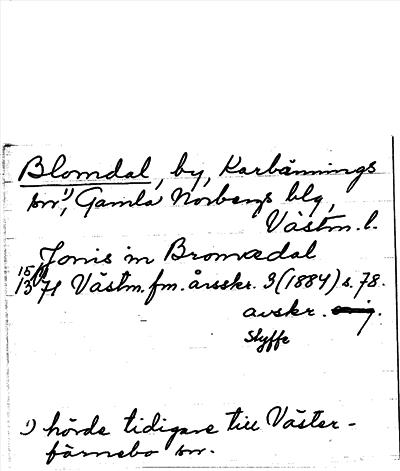 Blomdal, by, Karbännings
sn¹⁾, Gamla Norbergs blg,
Västm. l.
Jonis in Bromædal
15/11
1371 Västm. fm. årsskr. 3 (1884) s. 78.
avskr.
Styffe
¹⁾ hörde tidigare till Väster-
färnebo sn.